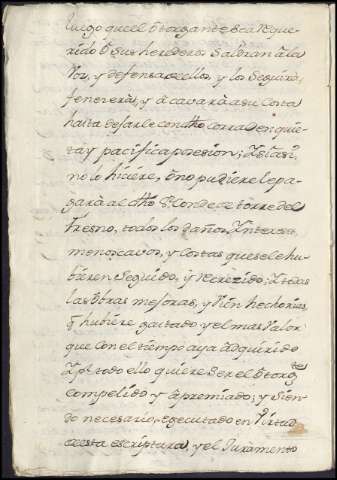 luego que el otorgante sea reque-
rido o sus herederos saldran a la
voz, y defensa de ello, y lo seguirá,
fenecerà, y acavarà a su costa
hasta dejarle con dho Corral en quie-
ta y pacifica posesion; Y si asi
no lo hiciere, o no pudiere le pa-
garà al dho Sr. Conde de torre del
fresno, todos los daños, Yntereses,
menoscavos, y Costas que se le hu-
bieren seguido, y recrecido; Y todas
las obras mejoras, y vien hechorias
q hubiere gastado y el mas Valor
que con el tiempo aya adquirido
Y pr. todo ello quiere ser el otorgte
compelido y apremiado; y sien-
do necesario, egecutado en virtud
de esta escriptura, y el Juramento